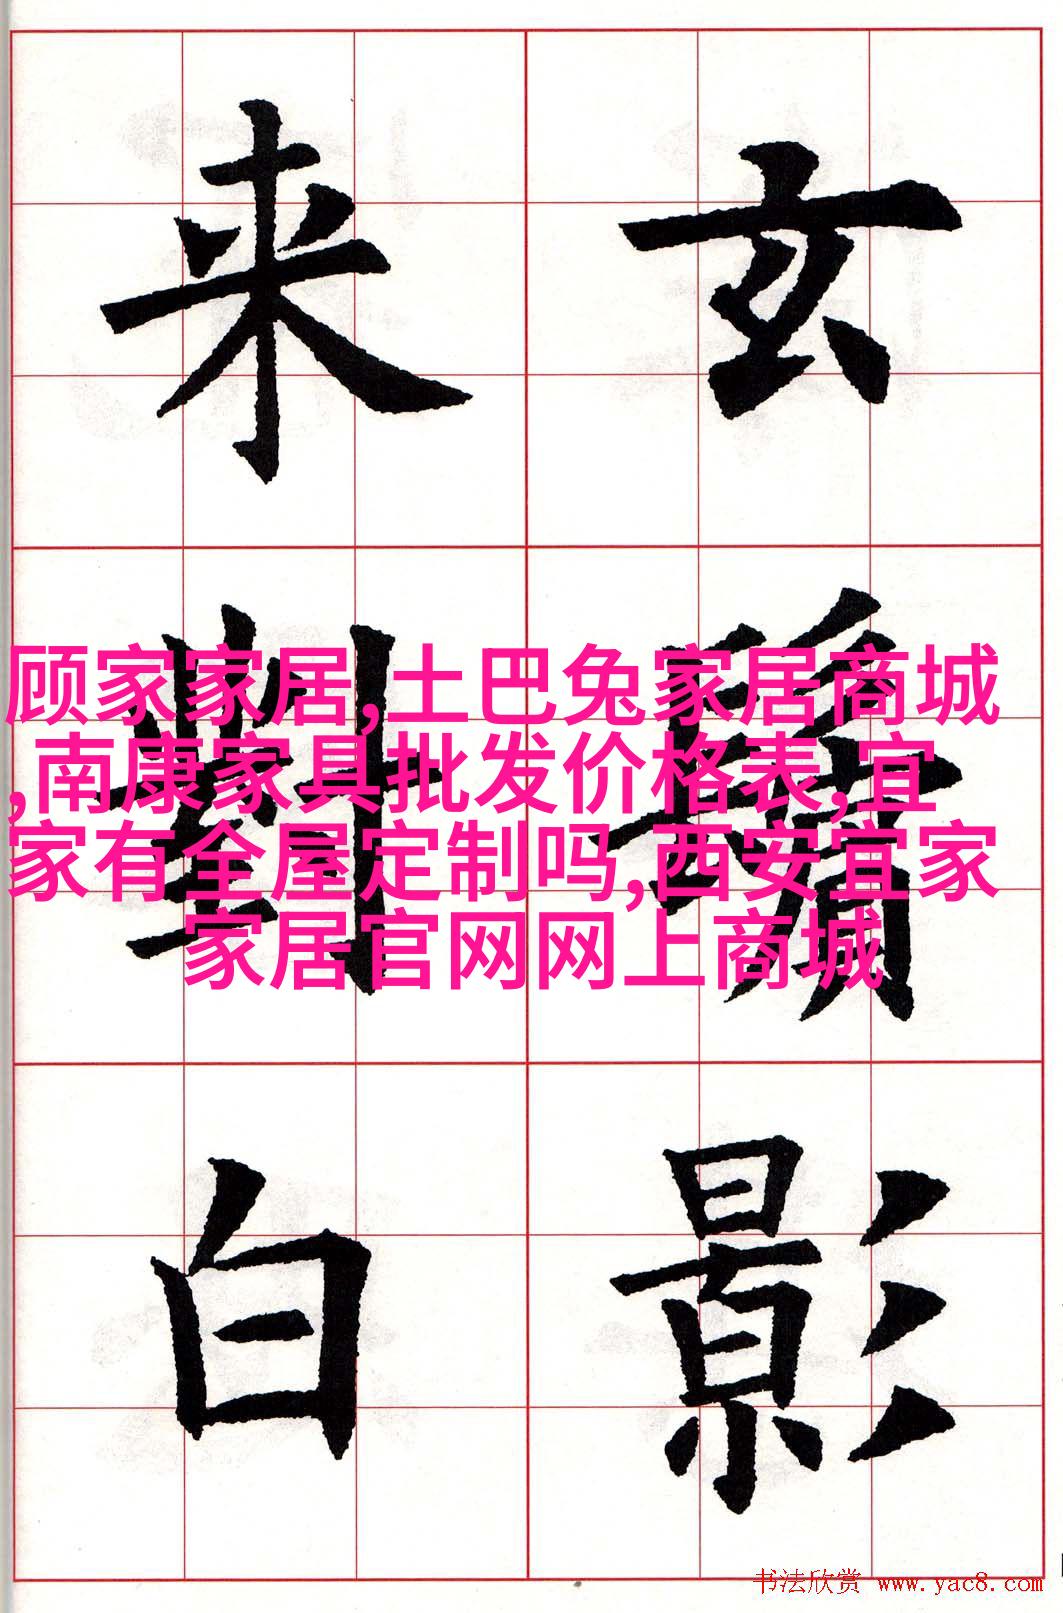 玄鬢影
来對白
顾家家居,土巴兔家居商城
,南康家具批发价格表,宜
家有全屋定制吗,西安宜家
家居官网网上商城
书法欣赏 www.yac8.com